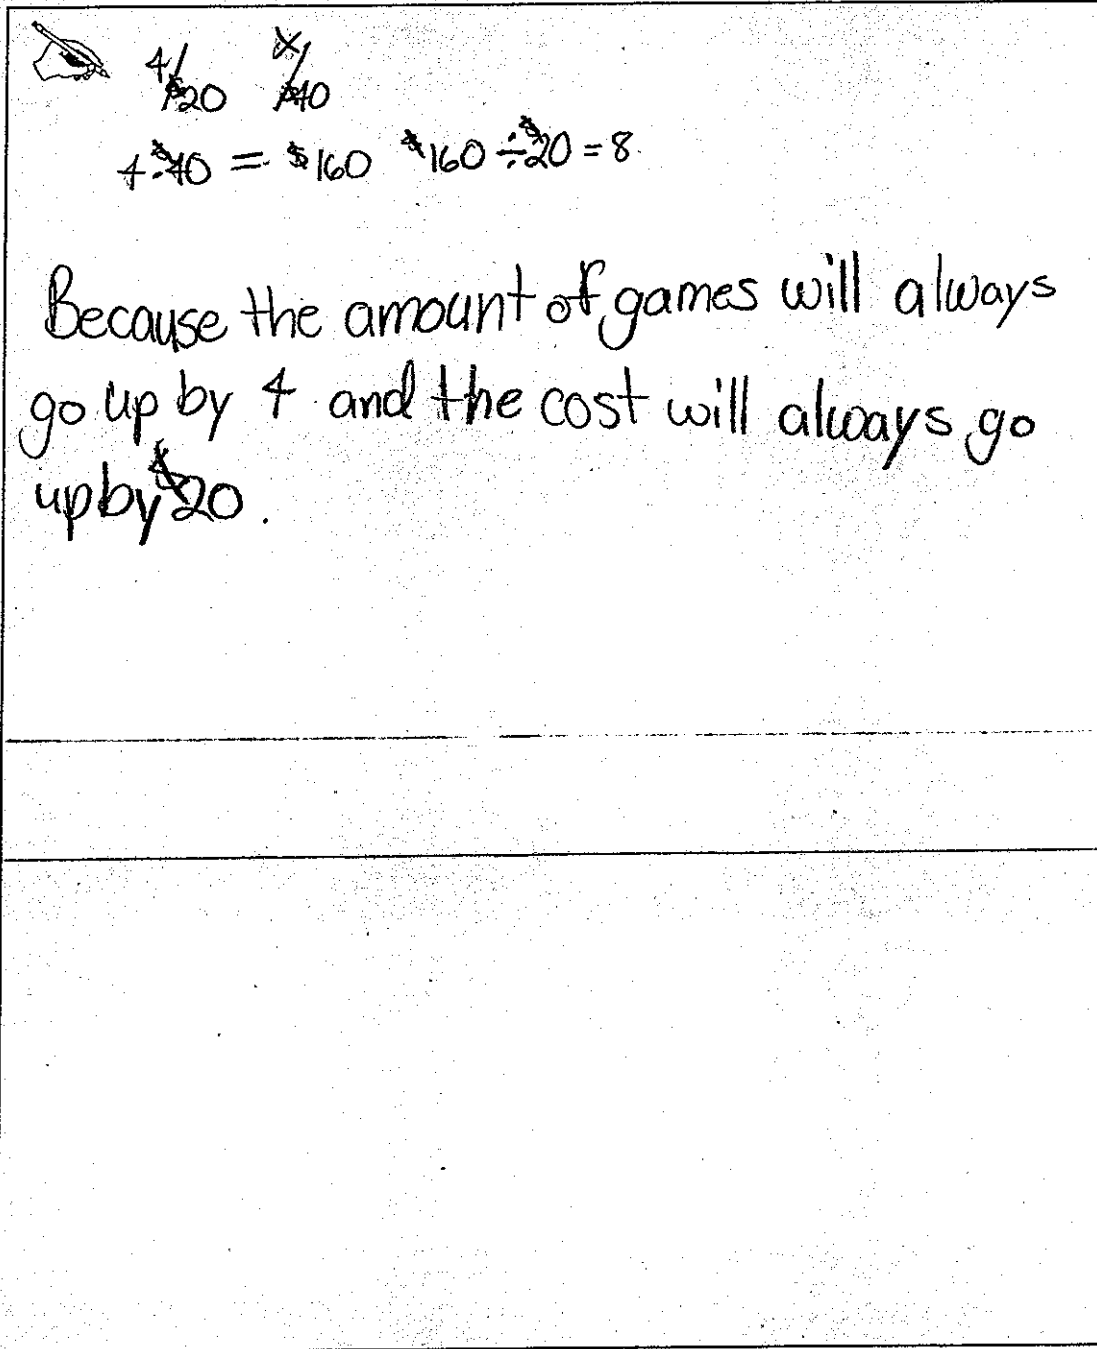 4/$20 x/$40
4·$40 = $160 $160 ÷ $20 = 8
Because the amount of games will always
go up by 4 and the cost will always go
up by $20.